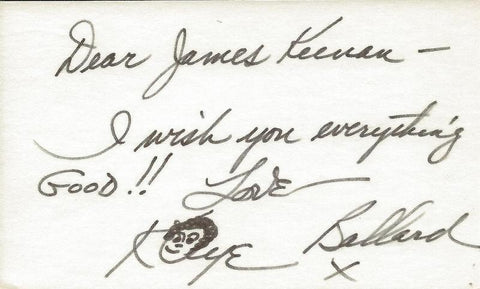 Dear James Keenan —
I wish you everything
GOOD!! Love
Kaye Ballard
X